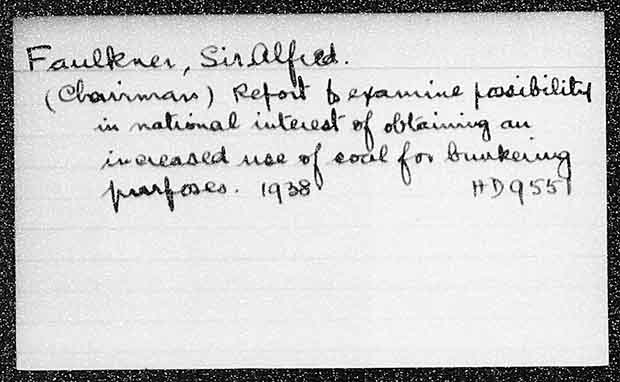 Faulkner, Sir Alfred.
(Chairman) Report to examine possibility
in national interest of obtaining an
increased use of coal for bunkering
purposes. 1938 HD9551